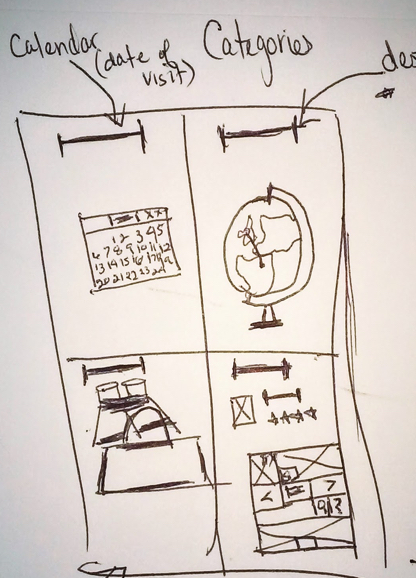 Calendar
(date of
visit)
Categories
des
1 2 3 4 5
6 7 8 9 10 11 12
13 14 15 16 17 18
20 21 22 23 24